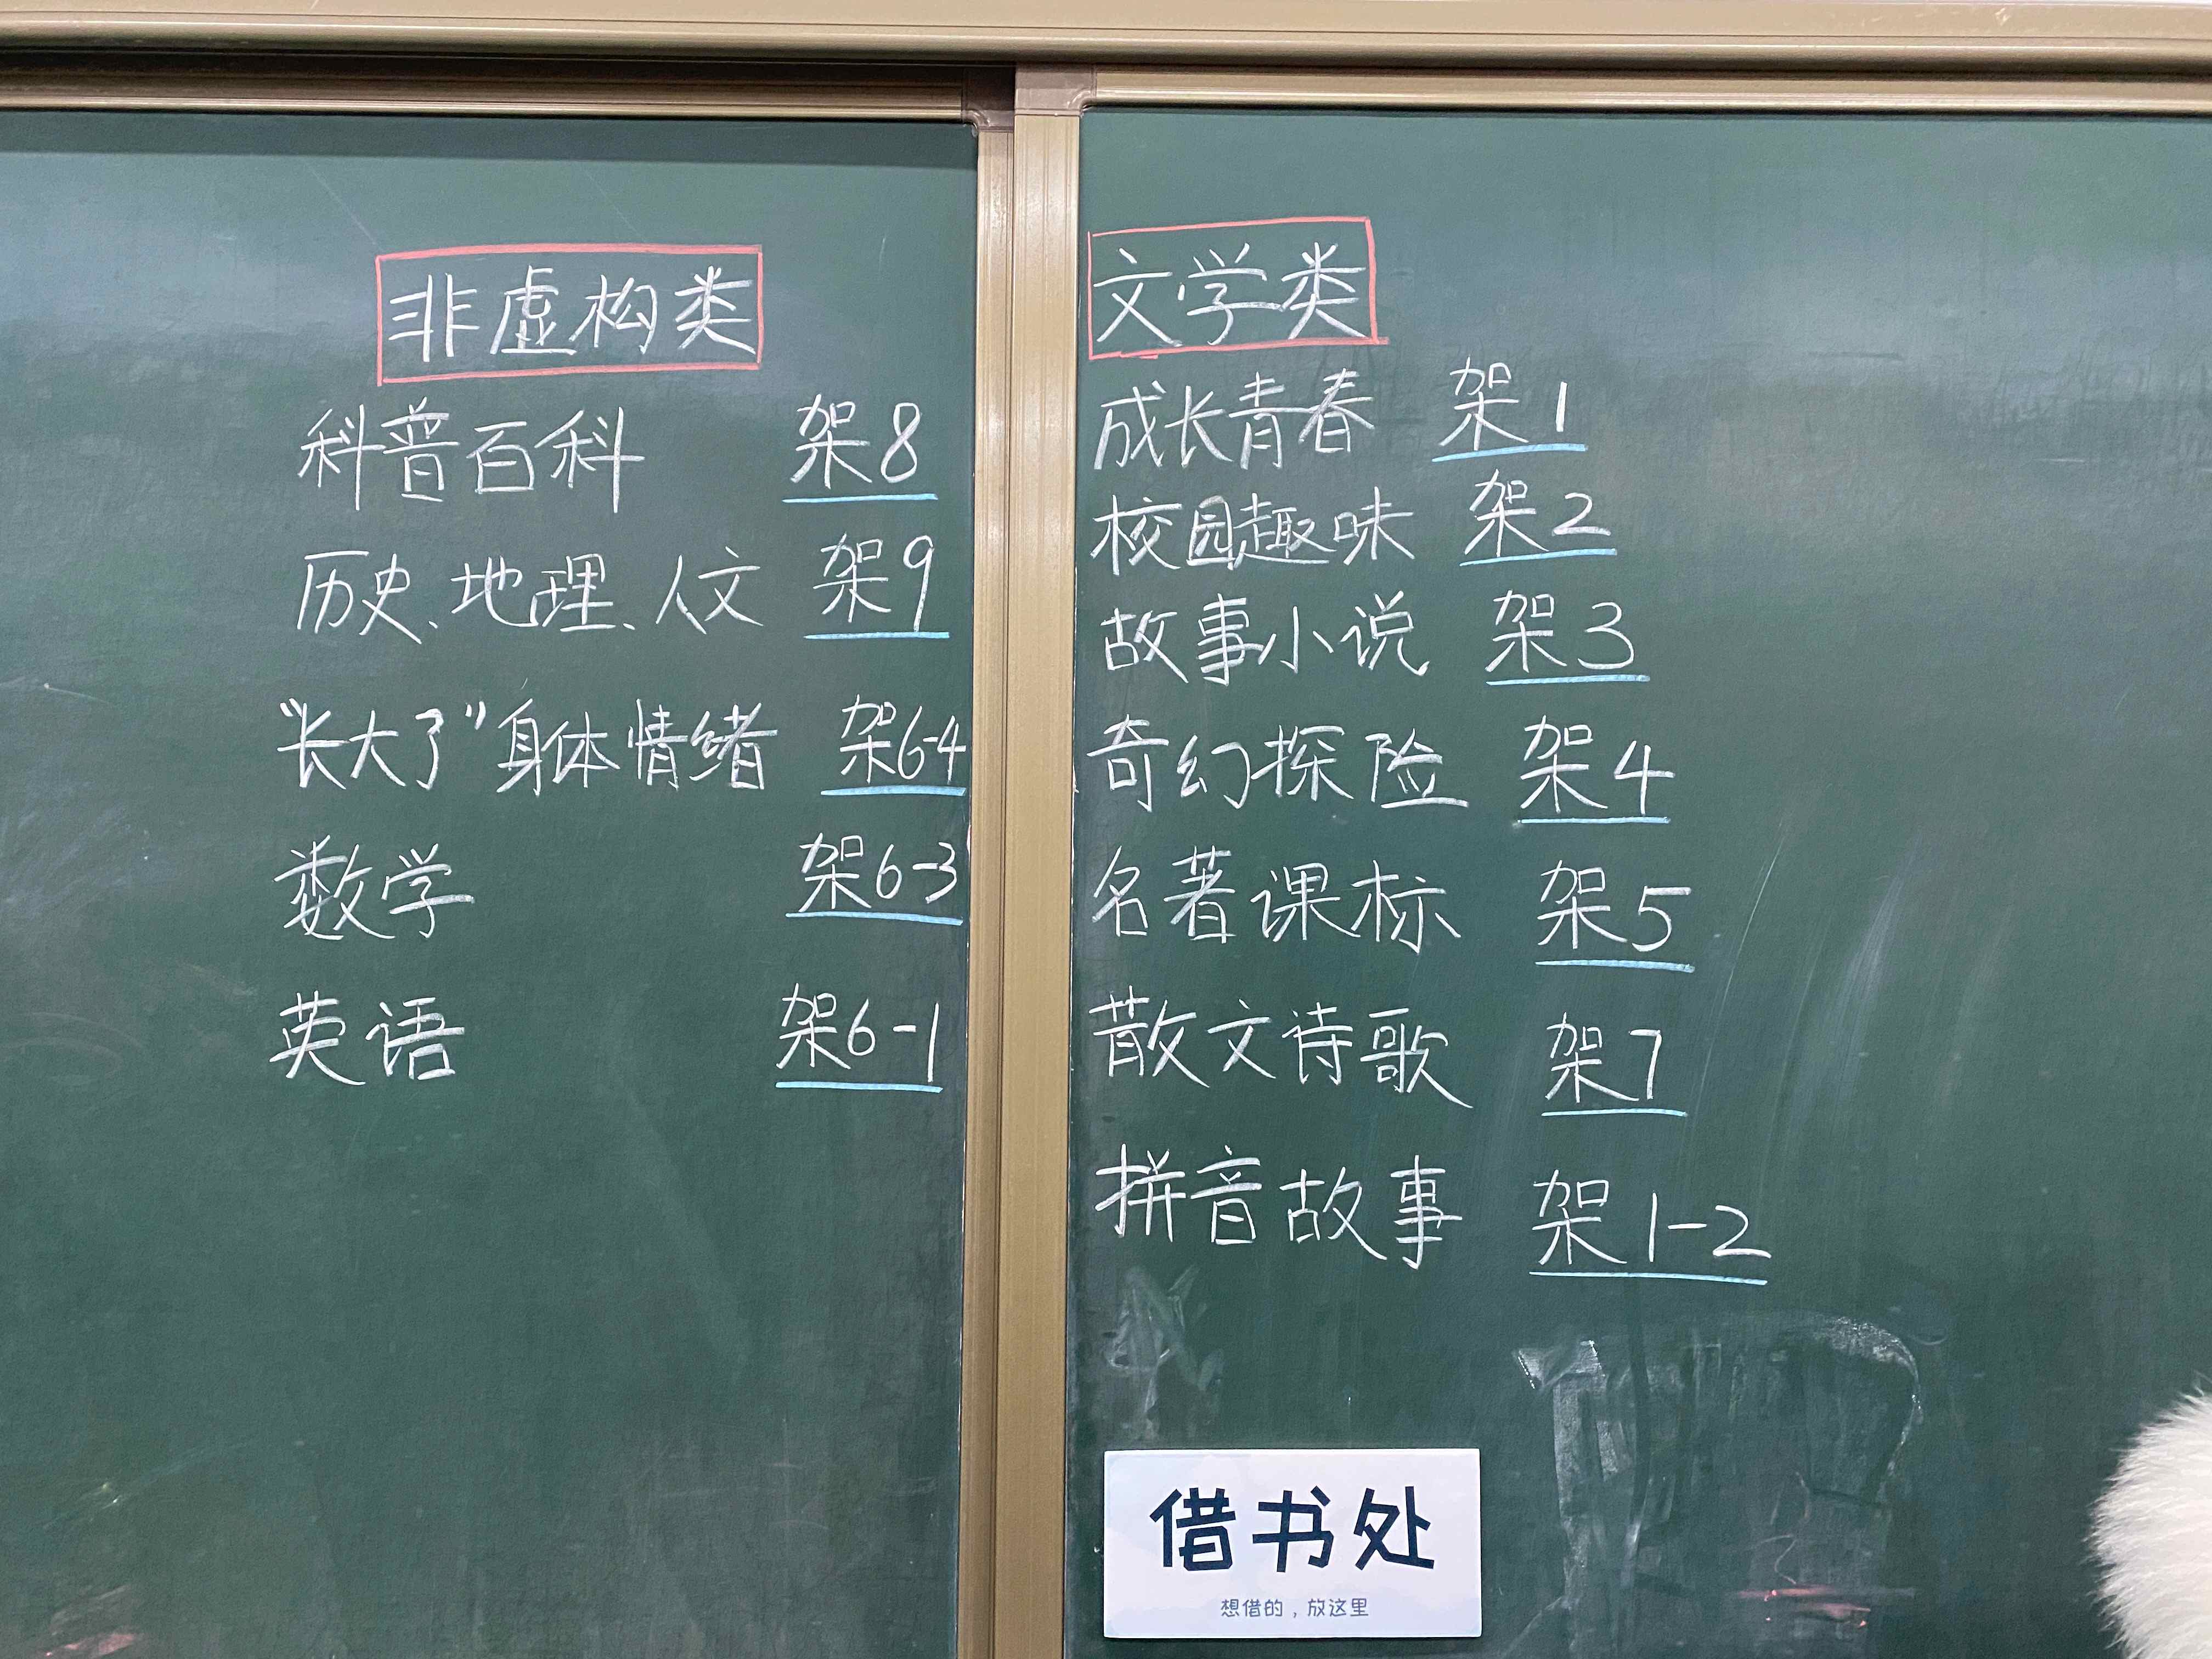 非虚构类
科普百科 架8
历史、地理、人文 架9
“长大了”身体情绪 架6-4
数学 架6-3
英语 架6-1
文学类
成长青春 架1
校园趣味 架2
故事小说 架3
奇幻探险 架4
名著课标 架5
散文诗歌 架7
拼音故事 架1-2
借书处
想借的，放这里